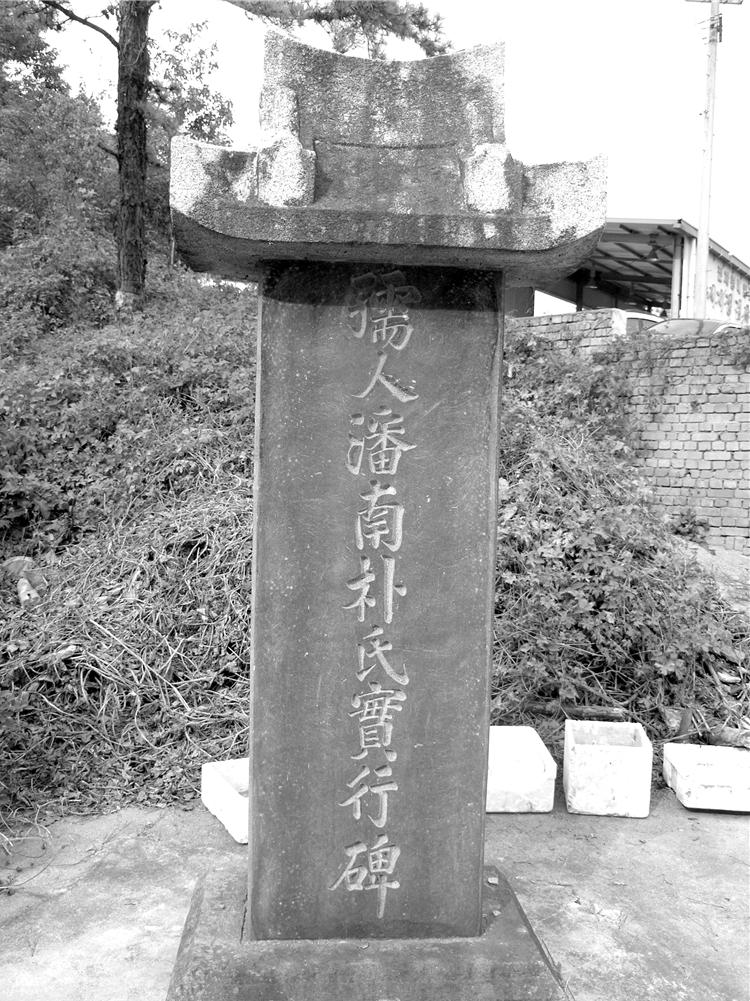 孺人潘南朴氏實行碑